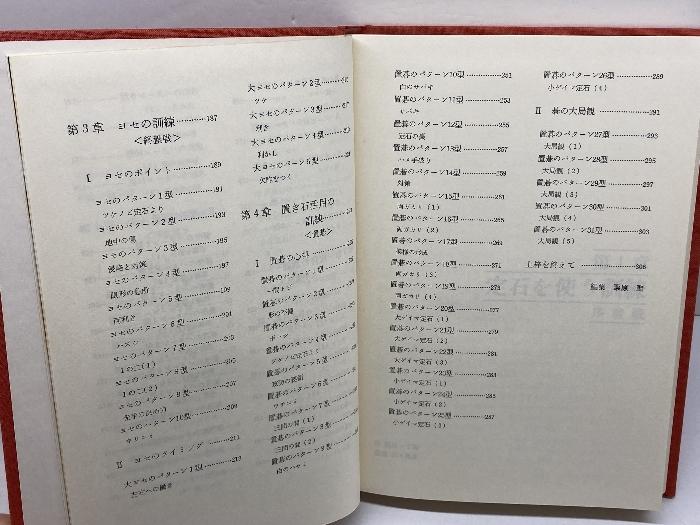 第3章 ヨセの訓練…………187
＜終盤戦＞
I ヨセのポイント…………189
ヨセのパターン1型…………191
ツケノビ定石より
ヨセのパターン2型…………193
地中の傷
ヨセのパターン3型…………195
ヨセのパターン4型…………197
ヨセのパターン5型
ヨセのパターン6型
ハネツギ
ヨセのパターン7型
1の二(1)
ヨセのパターン8型
1の二(2)
ヨセのパターン9型…………207
ヨセのパターン10型…………209
II ヨセのタイミング…………211
大ヨセのパターン1型…………213
大ヨセのパターン2型
ツケ
大ヨセのパターン3型
大ヨセのパターン4型
利かし
大ヨセのパターン5型
第4章 置き石活用の
訓練
＜置碁＞
I 置碁の心得
置碁のパターン1型
置碁のパターン2型
置碁のパターン3型
置碁のパターン4型
置碁のパターン5型
置碁のパターン6型
置碁のパターン7型
三間の質(1)
置碁のパターン8型
三間の質(2)
置碁のパターン9型
白のハサミ
置碁のパターン10型…………251
白のサバキ
置碁のパターン11型…………253
置碁のパターン12型…………255
定石の奥
置碁のパターン13型…………257
ハメ手破り
置碁のパターン14型…………259
置碁のパターン15型…………261
両ガカリ(1)
置碁のパターン16型…………265
両ガカリ(2)
置碁のパターン17型…………268
置碁のパターン18型…………271
両ガカリ(3)
置碁のパターン19型…………273
両ガカリ(4)
置碁のパターン20型…………277
大ゲイマ定石(1)
置碁のパターン21型…………279
大ゲイマ定石(2)
置碁のパターン22型…………281
大ゲイマ定石(3)
置碁のパターン23型…………283
小ゲイマ定石(1)
置碁のパターン24型…………285
小ゲイマ定石(2)
置碁のパターン25型…………287
小ゲイマ定石(3)
置碁のパターン26型…………289
小ゲイマ定石(4)
II 碁の大局観…………291
置碁のパターン27型…………293
大局観(1)
置碁のパターン28型…………295
大局観(2)
置碁のパターン29型…………297
大局観(3)
置碁のパターン30型…………301
大局観(4)
置碁のパターン31型…………303
大局観(5)
上梓を終えて…………306